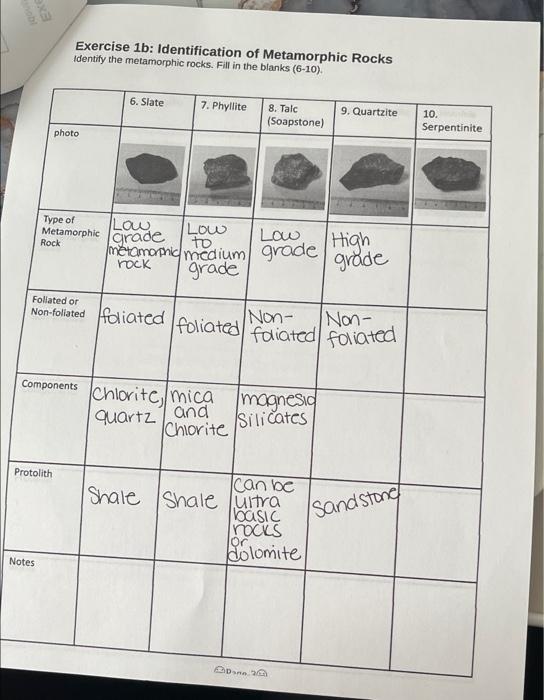 Exercise 1b: Identification of Metamorphic Rocks
Identify the metamorphic rocks. Fill in the blanks (6-10).
6. Slate
7. Phyllite
8. Talc
(Soapstone)
9. Quartzite
10.
Serpentinite
photo
Type of
Metamorphic
Rock
Low
grade
metamorphic
rock
Low
to
medium
grade
Low
grade
High
grade
Foliated or
Non-foliated
foliated
foliated
Non-
foliated
Non-
foliated
Components
Chlorite,
quartz
mica
and
Chlorite
magnesia
silicates
Protolith
Shale
Shale
Can be
ultra
basic
rocks
or
dolomite
Sandstone
Notes